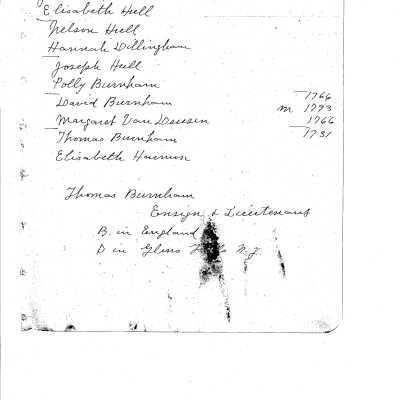 Elisabeth Hull
Nelson Hull
Hannah Dillingham
Joseph Hull
Polly Burnham 1766
David Burnham m 1793
Margaret Van Deusen 1766
Thomas Burnham 1731
Elisabeth
Thomas Burnham
Ensign & Lieutenant
B. in England
D in Glens N.Y